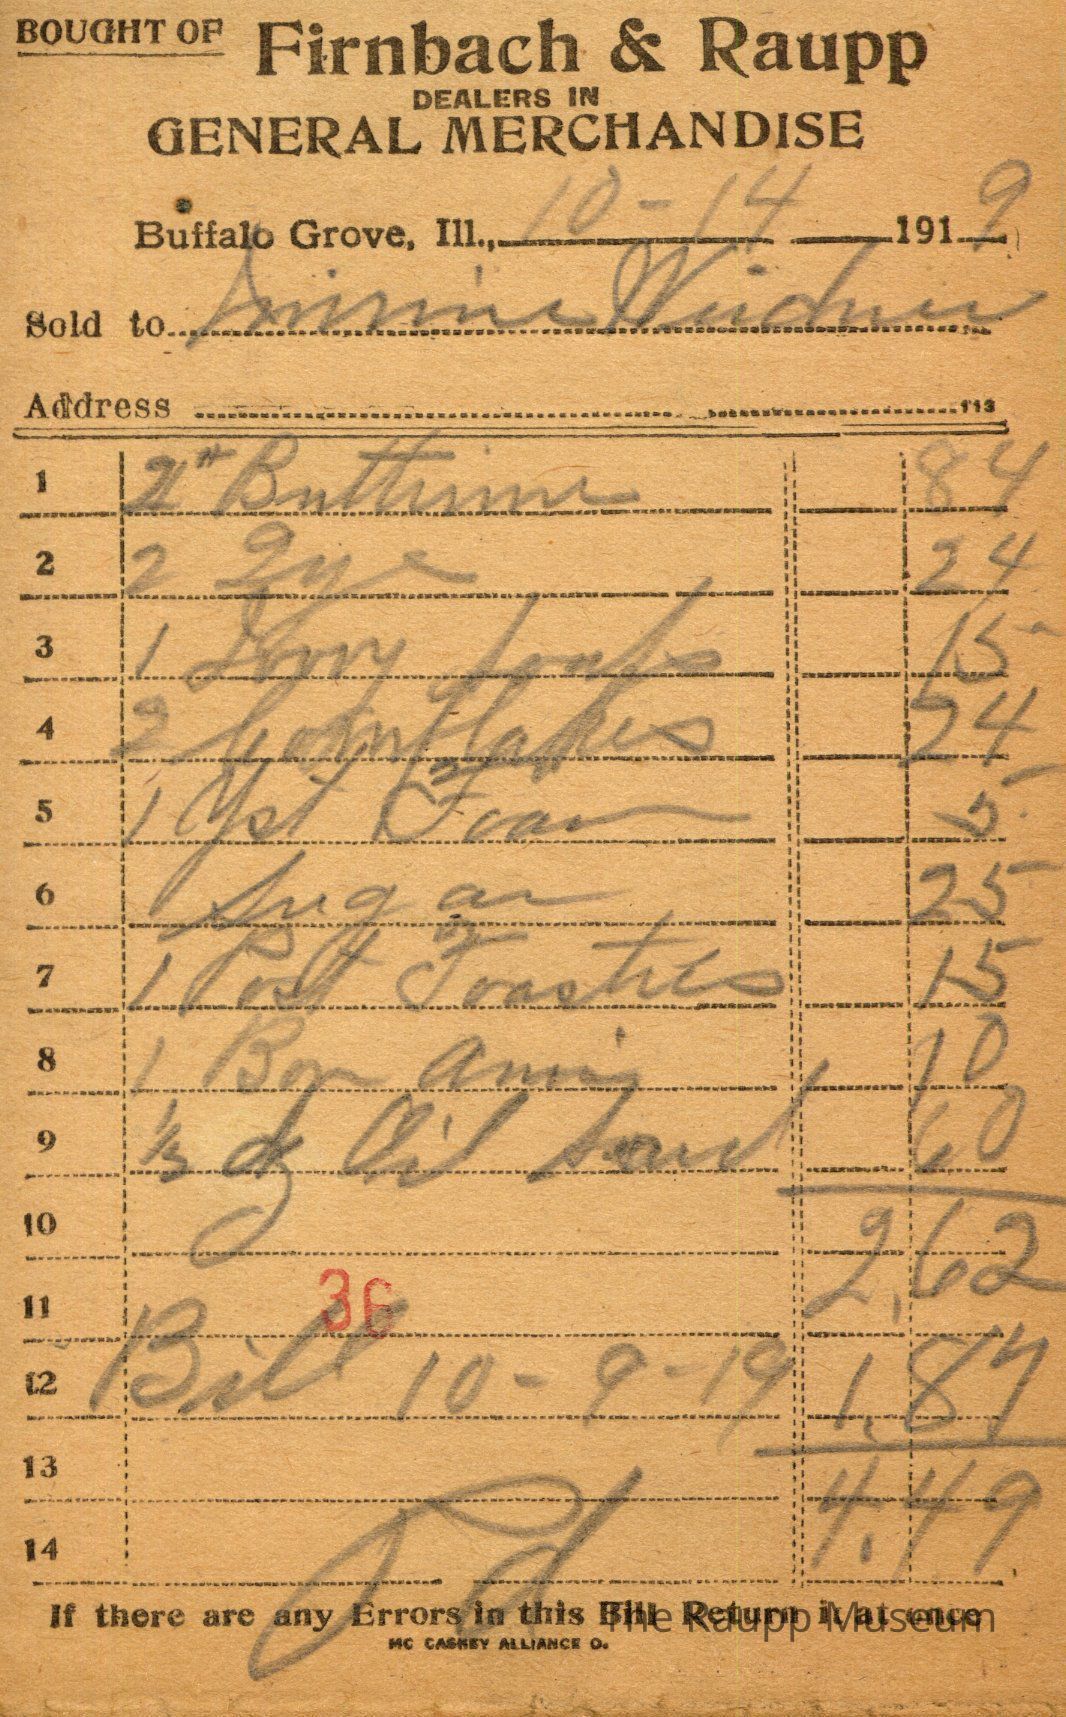 BOUGHT OF Firnbach & Raupp
DEALERS IN
GENERAL MERCHANDISE
Buffalo Grove, Ill., 10-14 1919
Sold to Weidner
Address 113
1 2# Butterine 84
2 2 Lye 24
3 1 Ivory Soaps 15
4 2 Cornflakes 24
5 1 Yst Foam 5
6 Sugar 25
7 1 Post Toasties 15
8 1 Bon Ami 10
9 1/3 dz Oil Sard 60
10 2,62
11 36
12 Bill 10-9-19 1,87
13 4,49
14 Pd
If there are any Errors in this Bill Return it at once
MC CASKEY ALLIANCE O.
The Raupp Museum